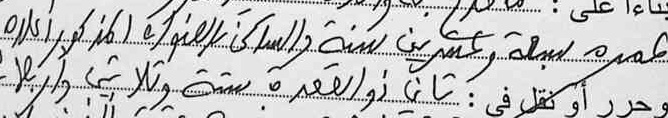 بناءا على :
عمره سبعة وعشرين سنة والساكن بالعنوان المذكور أعلاه
وحرر أو نقل في : ثاني ذو القعدة ستة وثلاثين وأربعـ